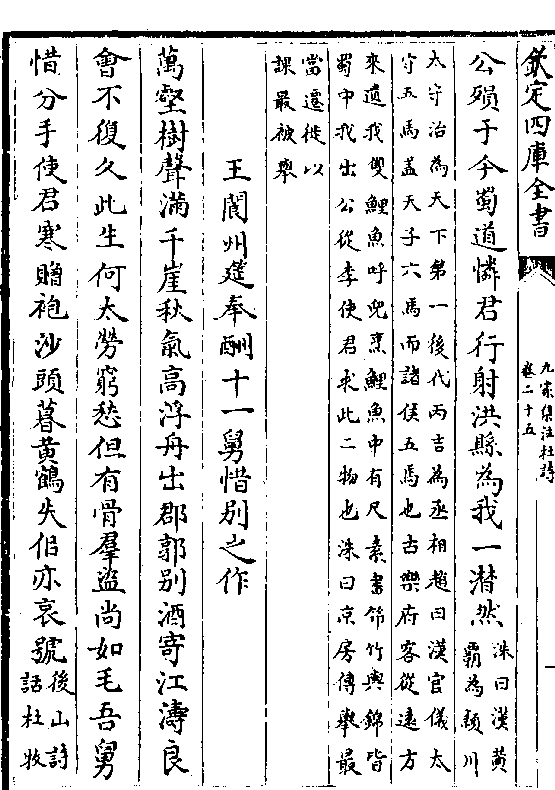 欽定四庫全書
九家集注杜詩
卷二十五
公殞于今蜀道憐君行射洪縣為我一潸然
洙曰漢黄
霸為潁川
太守治為天下第一後代丙吉為丞相趙曰漢官儀太
守五馬盖天子六馬而諸侯五馬也古樂府客從逺方
來遺我雙鯉魚呼兒烹鯉魚中有尺素書筇竹與錦皆
蜀中我出公從李使君求此二物也洙曰京房傳舉最
當遷徙以
課最被舉
王閬州筵奉酬十一舅惜别之作
萬壑樹聲滿千崖秋氣髙浮舟出郡郭别酒寄江濤良
會不復久此生何太勞窮愁但有骨羣盗尚如毛吾舅
惜分手使君寒贈袍沙頭暮黄鶴失侣亦哀號
後山詩
話杜牧